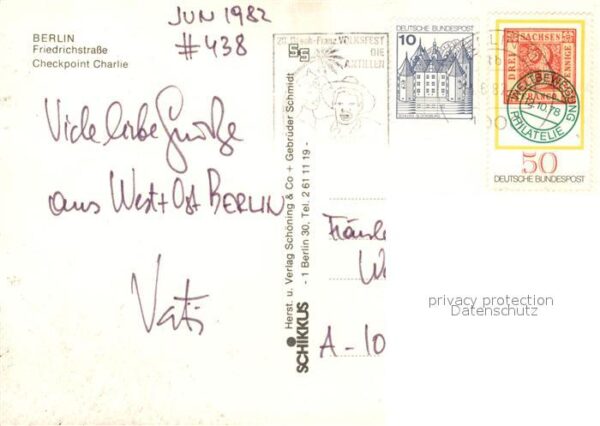 JUN 1982
#438
BERLIN
Friedrichstraße
Checkpoint Charlie
Viele liebe Grüße
aus West + Ost BERLIN
Vati
SCHIKKUS
Herst. u. Verlag Schöning & Co + Gebrüder Schmidt
- 1 Berlin 30, Tel. 2 61 11 19 -
VOLKSFEST
DIE
ANTILLEN
10
DEUTSCHE BUNDESPOST
SCHLOSS GLÜCKSBURG
SACHSEN
DREI
PFENNIGE
FRANCO
WELTBEWEGUNG
PHILATELIE
50
DEUTSCHE BUNDESPOST
A - 10
privacy protection
Datenschutz